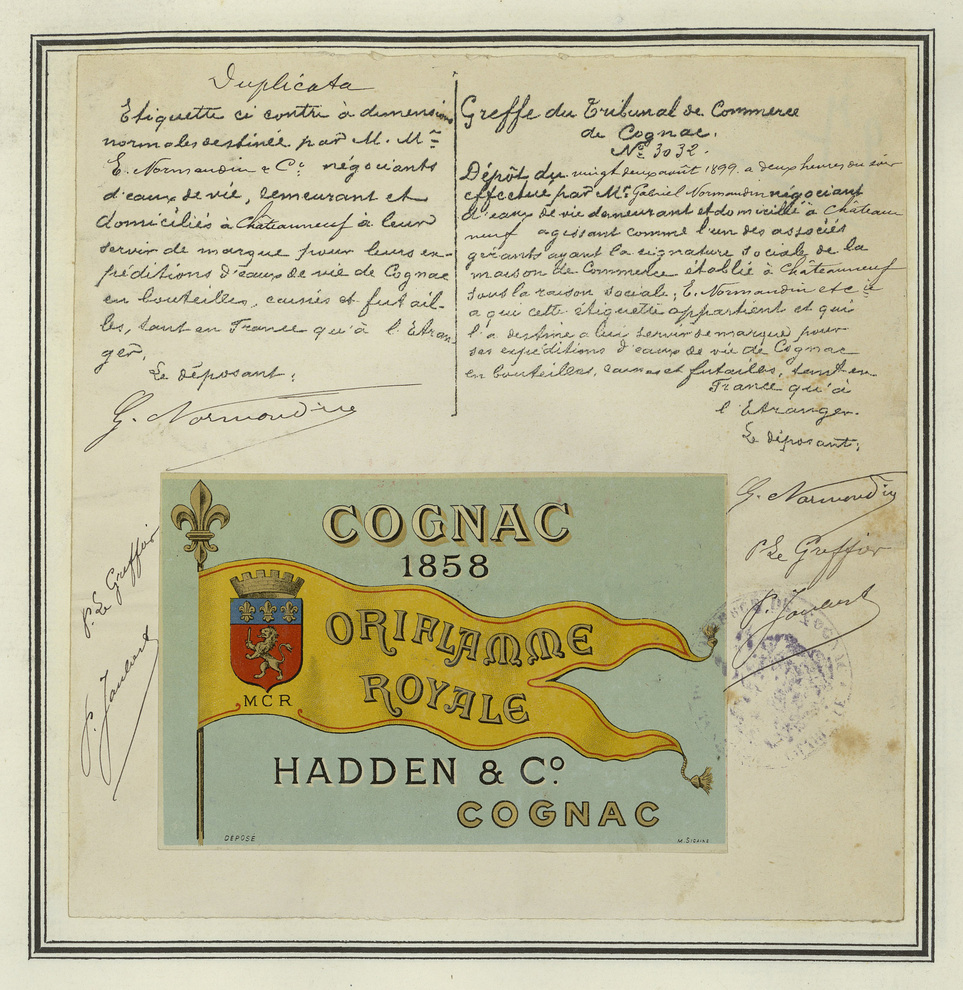 Duplicata
Etiquette ci contre à dimensions
normales destinée par M. Mrs
E. Normandin & Co négociants
d'eaux de vie, demeurant et
domiciliés à Châteauneuf à leur
servir de marque pour leurs ex-
péditions d'eaux de vie de Cognac
en bouteilles, caisses et futail-
les, tant en France qu'à l'Etran-
ger.
Le déposant:
G. Normandin
Greffe du Tribunal de Commerce
de Cognac.
No 3032.
Dépôt du vingt deux août 1899. a deux heures du soir
effectué par Mr Gabriel Normandin négociant
d'eaux de vie demeurant et domicilié à Château
neuf agissant comme l'un des associés
gérants ayant la signature sociale de la
maison de Commerce établie à Châteauneuf
sous la raison sociale; E. Normandin et Cie
a qui cette étiquette appartient et qui
l'a destine a lui servir de marque pour
ses expéditions d'eaux de vie de Cognac
en bouteilles, caisses et futailles, tant en
France qu'à
l'Etranger.
Le déposant;
G. Normandin
P. Le Greffier
P. Joubert
P. Le Greffier
P. Joubert
COGNAC
1858
ORIFLAMME
ROYALE
MCR
HADDEN & Co
COGNAC
DÉPOSÉ